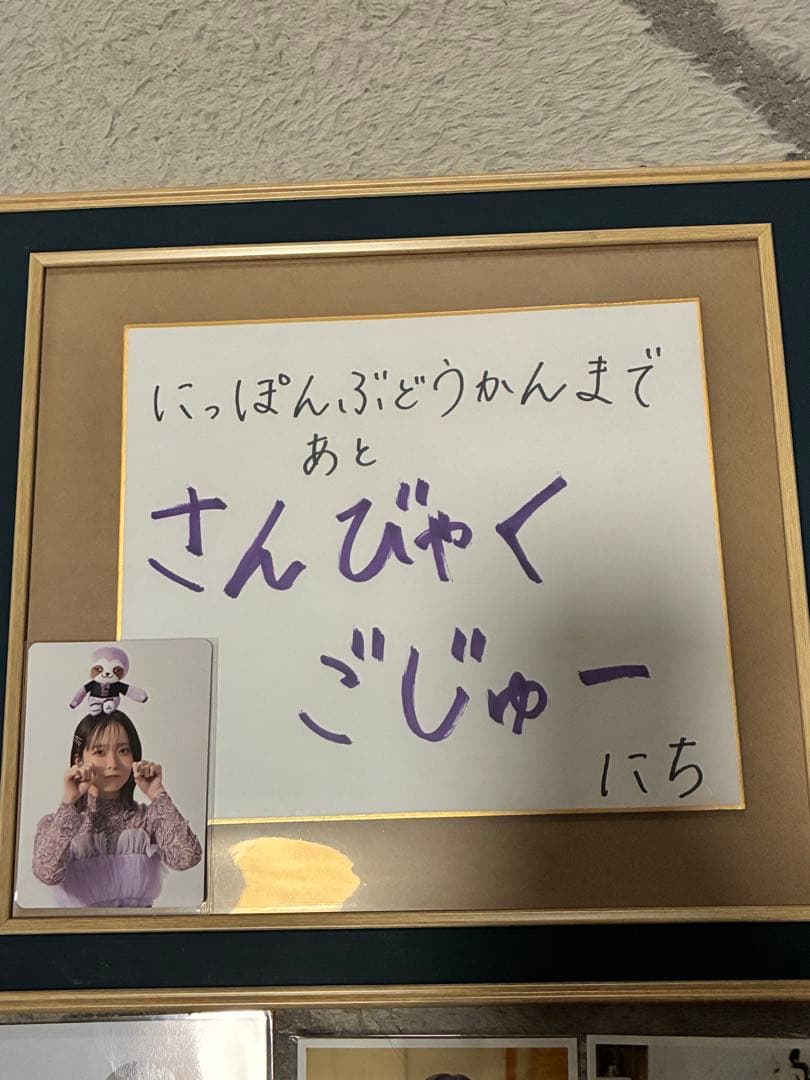 にっぽんぶどうかんまで
あと
さんびゃく
ごじゅー
にち